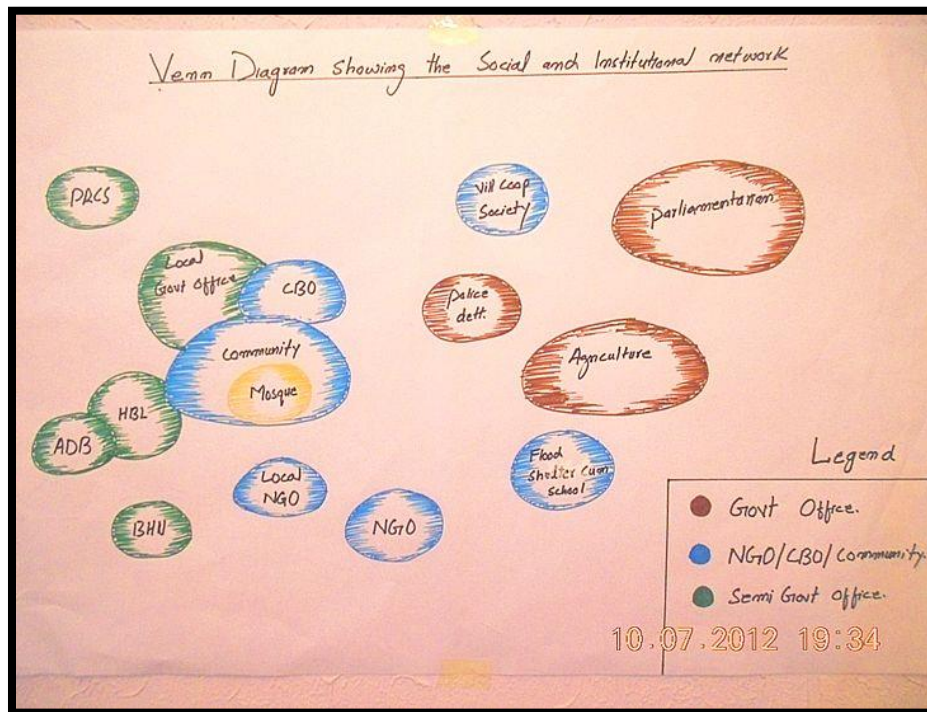 Venn Diagram showing the Social and Institutional network
PRCS
Vill Coop
Society
Parliamentarian
Local
Govt Office
CBO
Police
dett.
Community
Mosque
Agriculture
HBL
ADB
Local
NGO
Flood
Shelter Cum
school
BHU
NGO
Legend
Govt Office.
NGO/CBO/Community.
Semi Govt Office.
10.07.2012 19:34